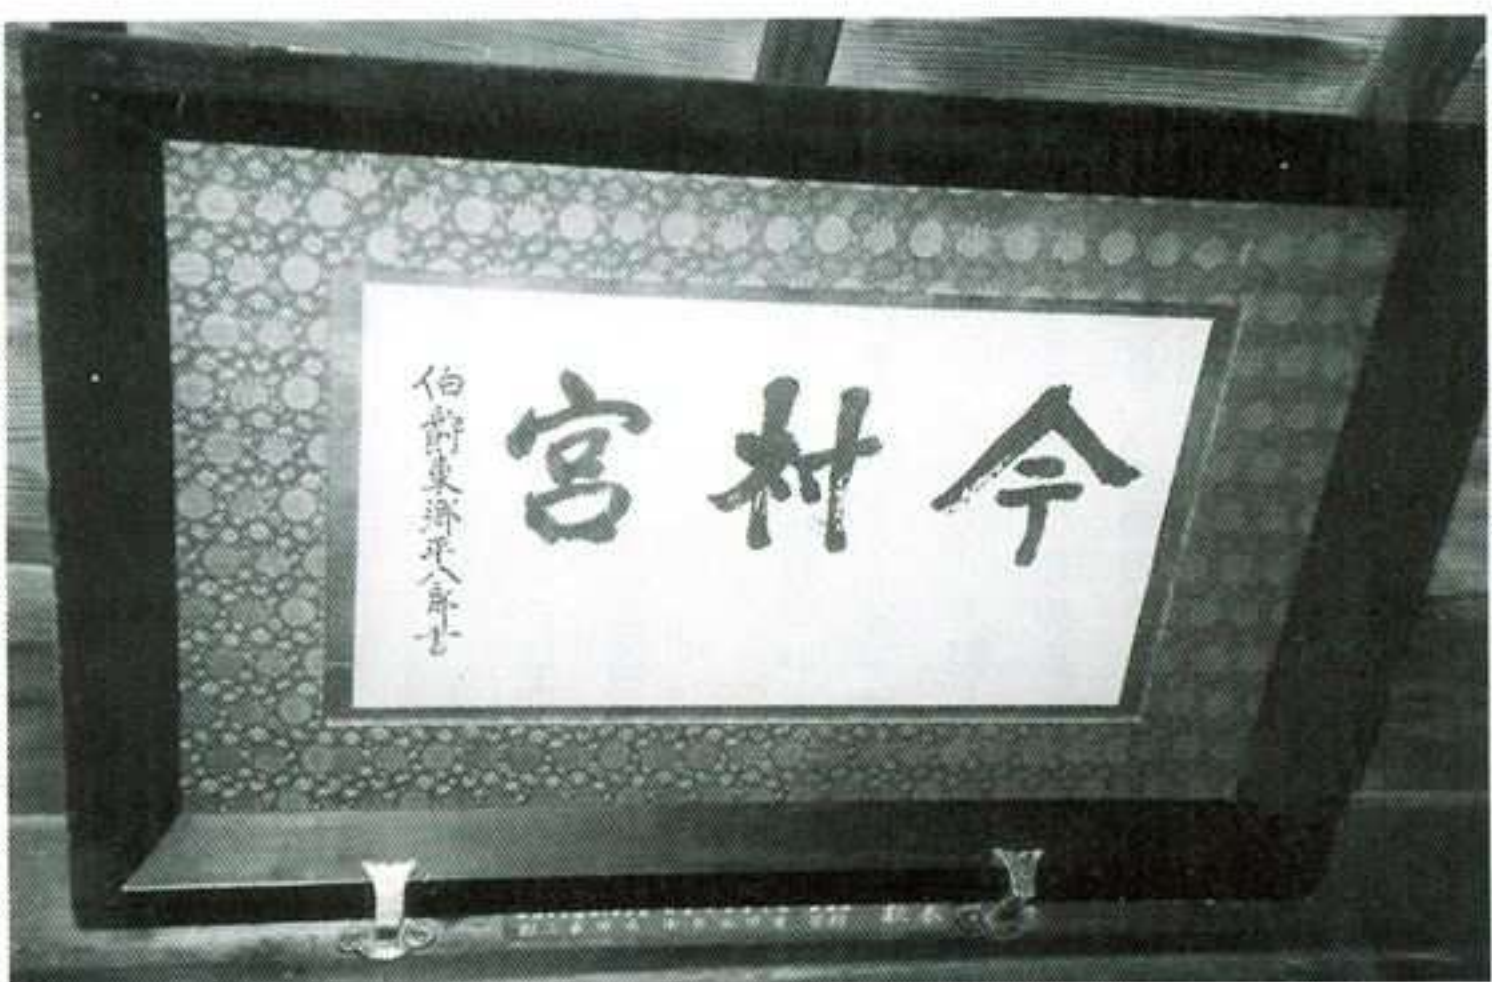 今村宮
伯爵東郷平八郎書